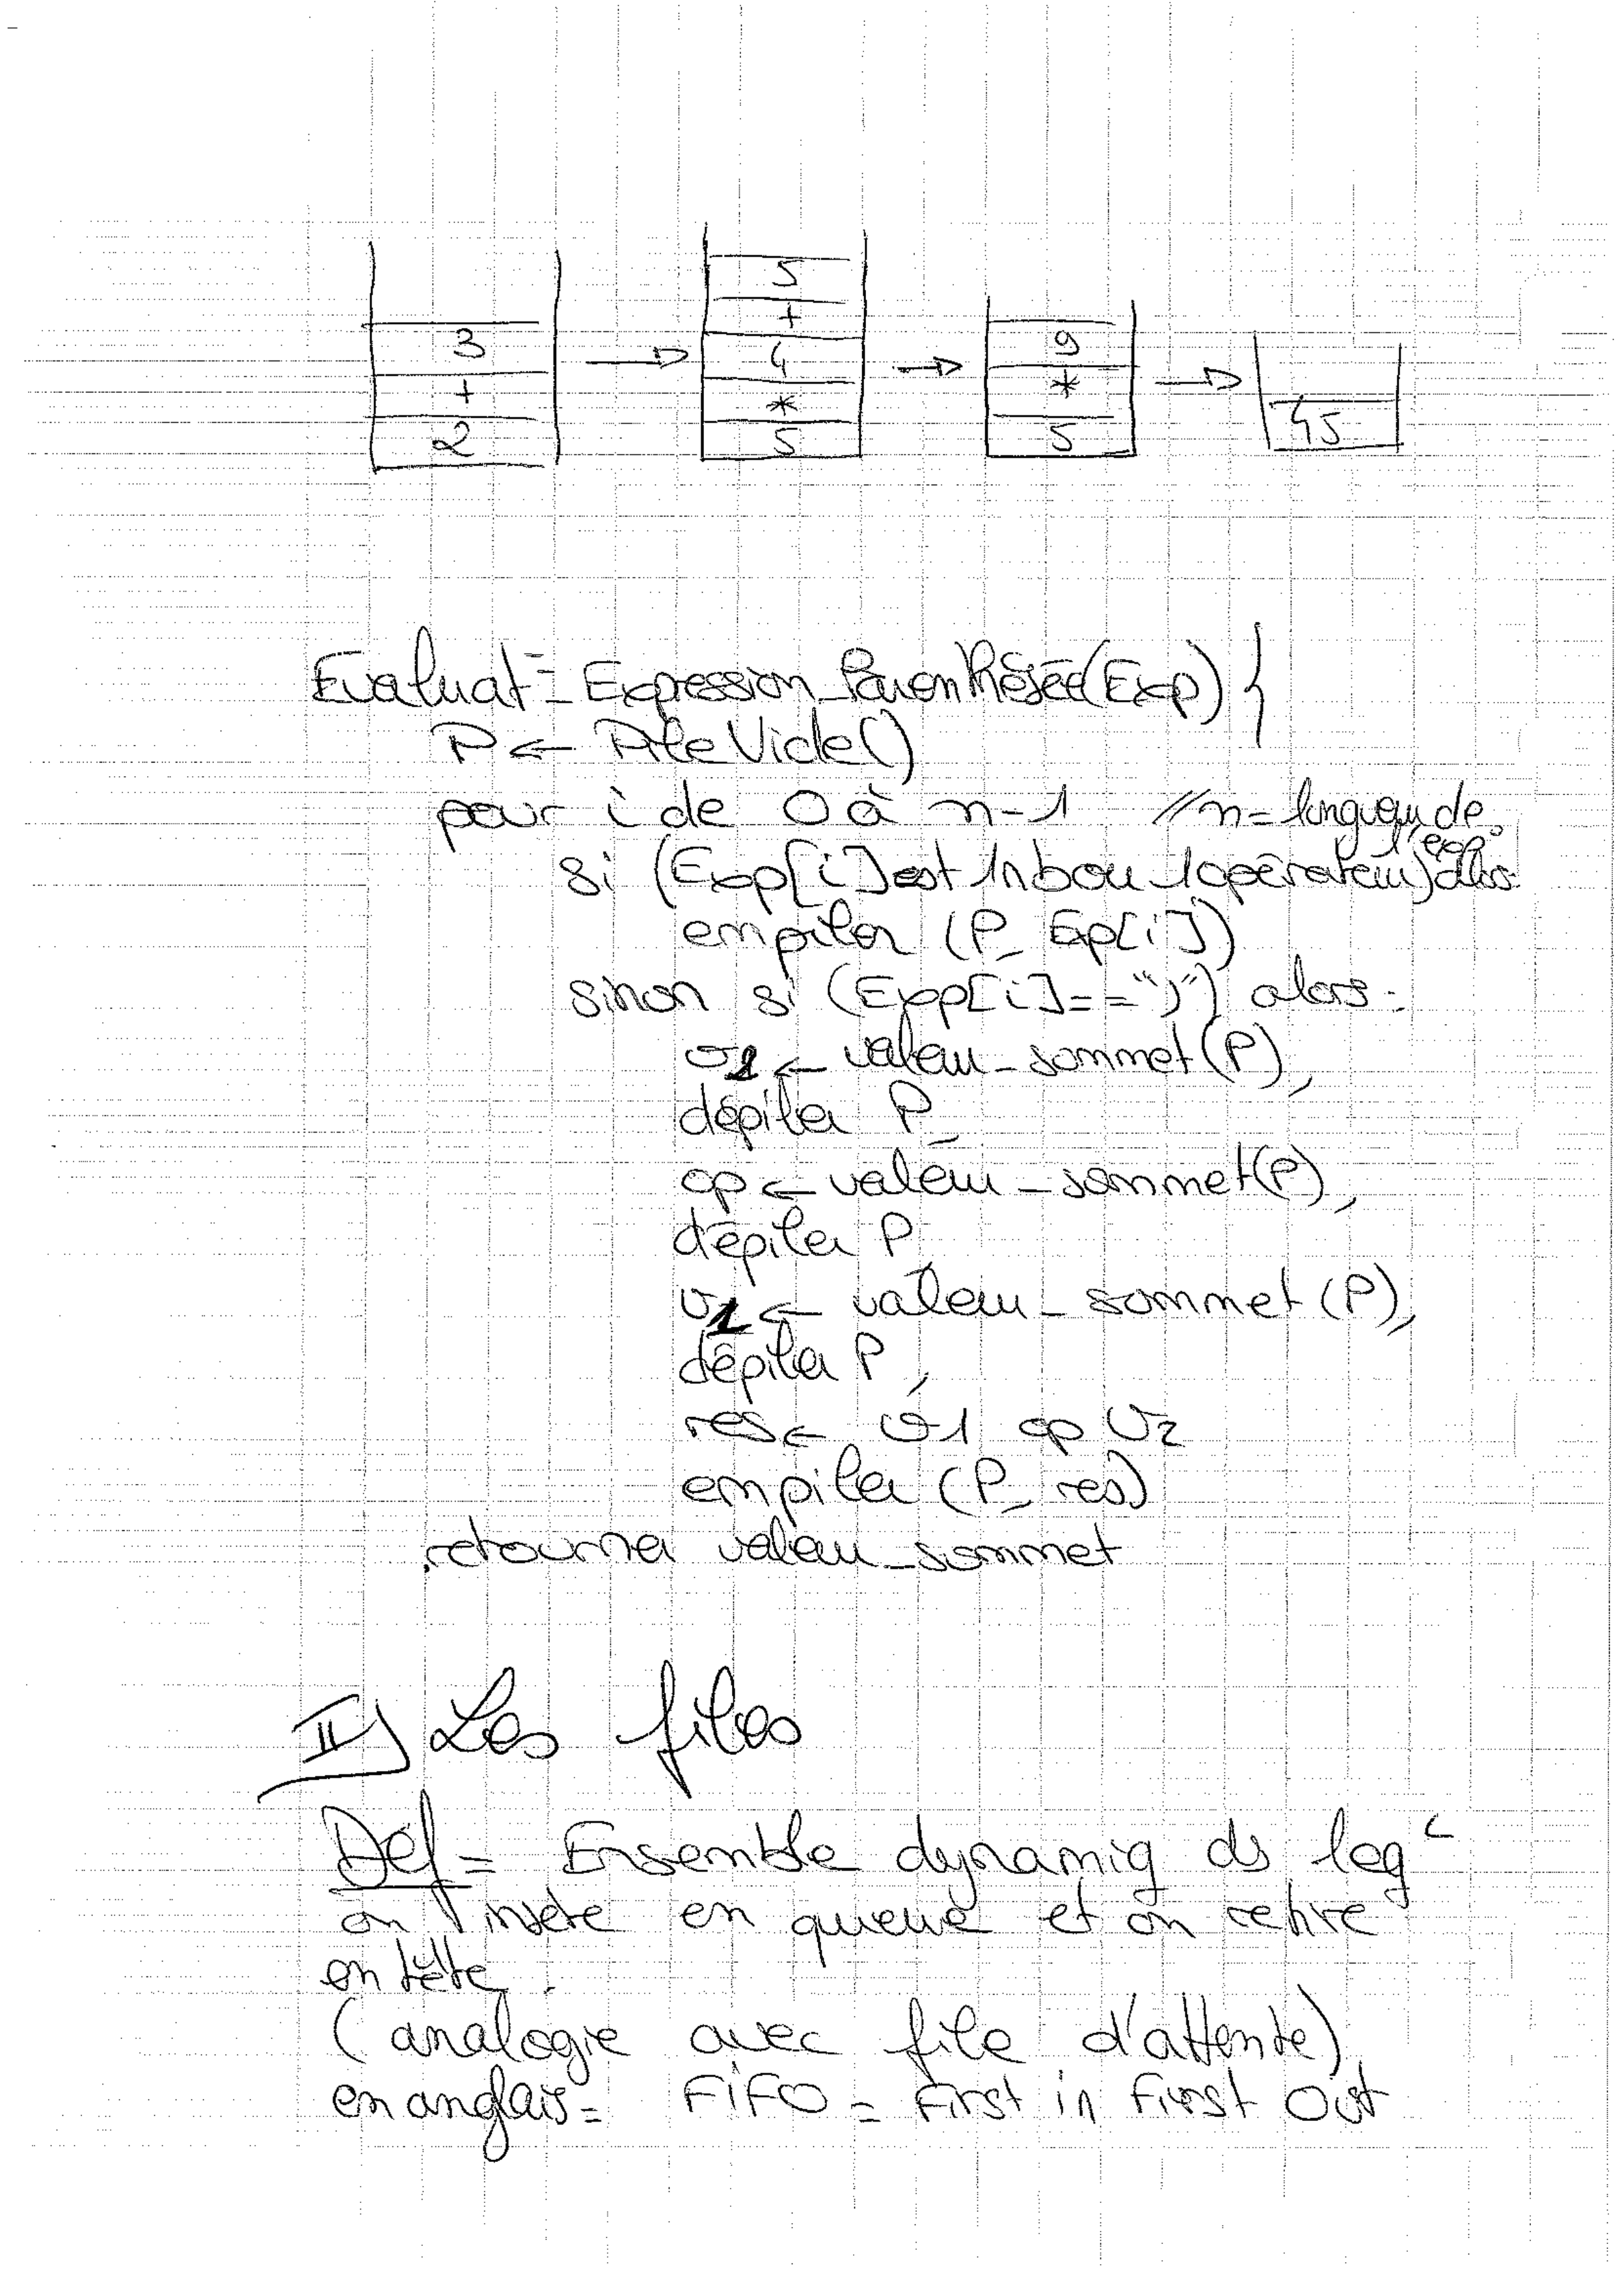 3
+
2
5
+
4
*
5
9
*
5
45
Evaluat° _ Expression_Parenthésée(Exp) {
P ← Pile Vide()
pour i de 0 à n-1 // n = longueur de
l'exp°
si (Exp[i] est 1 nb ou 1 opérateur) alors:
empiler (P_ Exp[i])
sinon si (Exp[i] == ")") alors:
v2 ← valeur_sommet(P),
dépiler P_
op ← valeur_sommet(P),
dépiler P,
v1 ← valeur_sommet(P),
dépiler P,
res ← v1 op v2
empiler (P_ res)
retourner valeur_sommet
II) Les files
Def = Ensemble dynamiq ds leq^c
on insère en queue et on retire
en tête.
(analogie avec file d'attente)
en anglais = FIFO = First in First Out